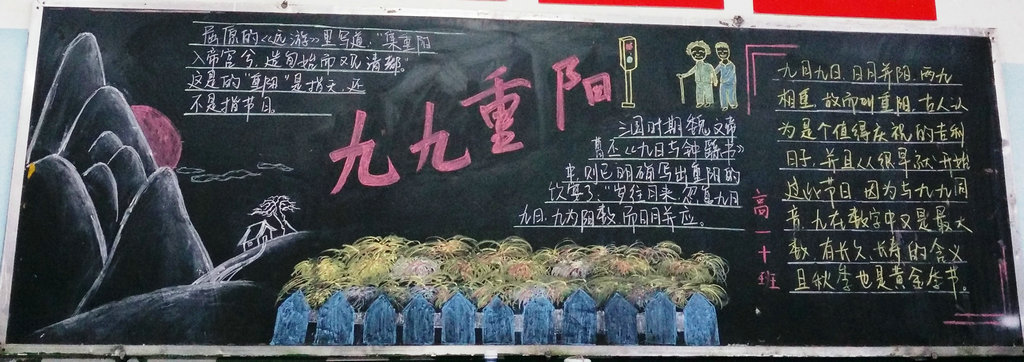 屈原的《远游》里写道:"集重阳
入帝宫兮,造旬始而观清都。"
这里的"重阳"是指天,还
不是指节日。
九九重阳
三国时期魏文帝
曹丕《九日与钟繇书》
中,则已明确写出重阳的
饮宴了:"岁往月来,忽复九月
九日。九为阳数,而日月并应。
高一十班
九月九日,日月并阳,两九
相重,故而叫重阳,古人认
为是个值得庆祝的吉利
日子,并且从很早就开始
过此节日,因为与九九同
音,九在数字中又是最大
数,有长久、长寿的含义
且秋季也是黄金季节。